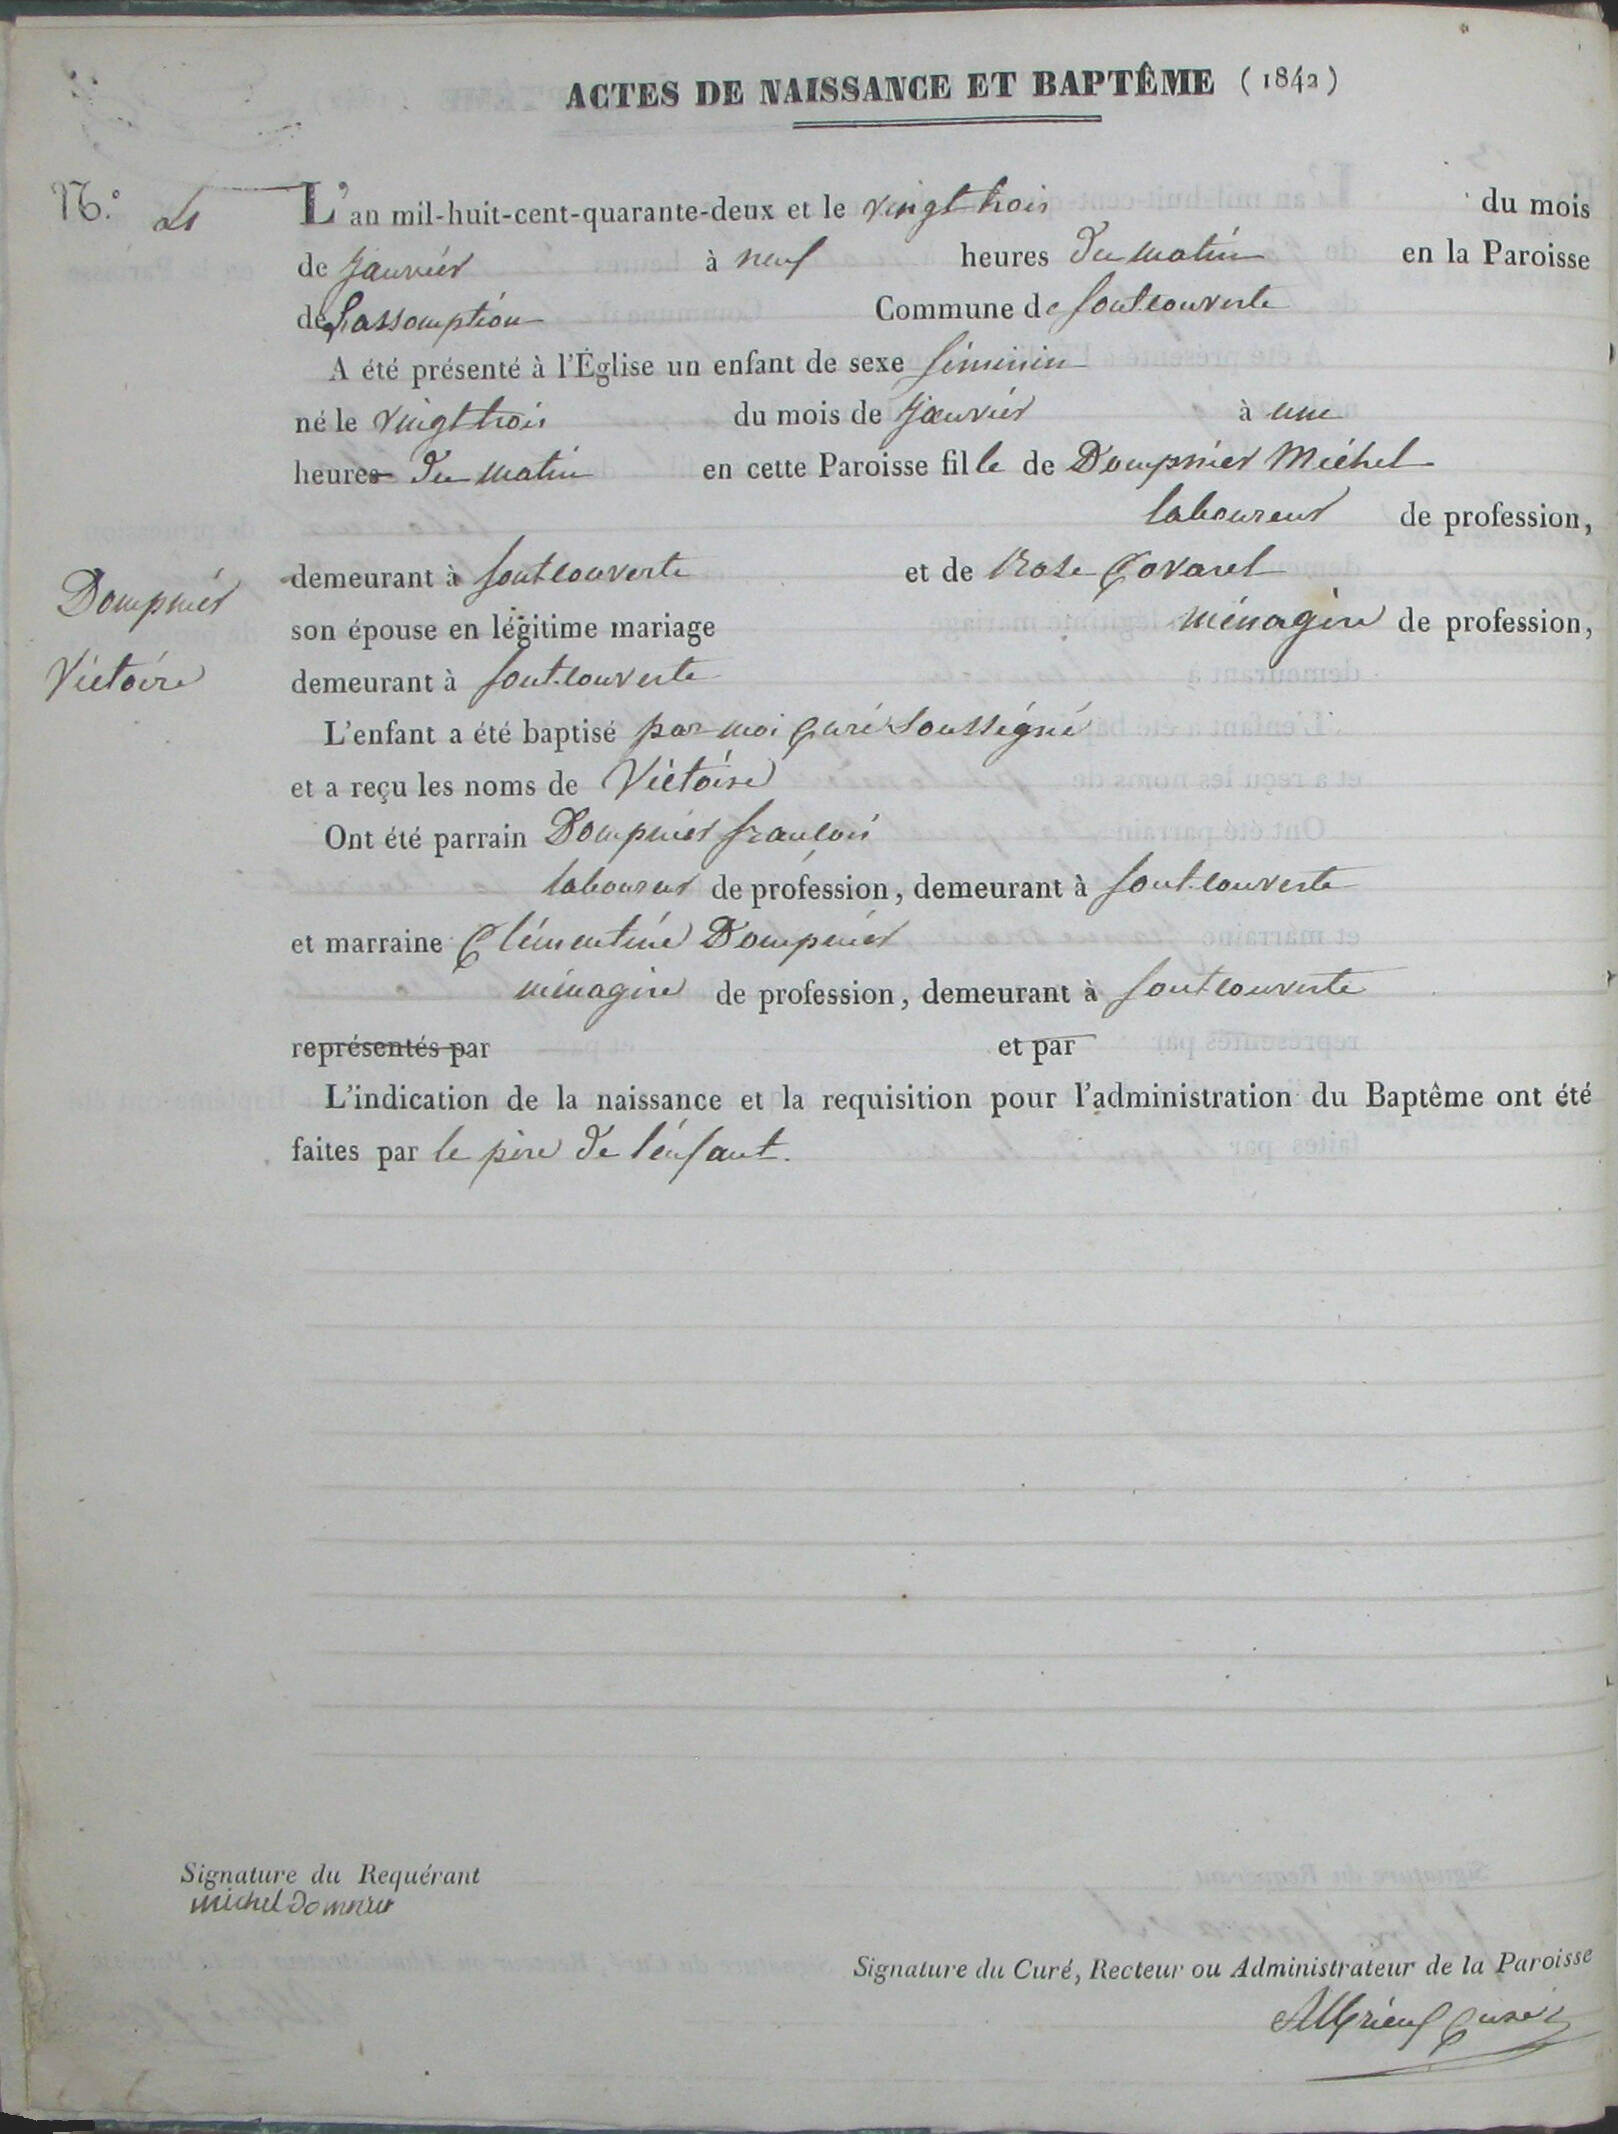 ACTES DE NAISSANCE ET BAPTÊME (1842)
N.° 4
L'an mil-huit-cent-quarante-deux et le vingt trois du mois
de janvier à neuf heures du matin en la Paroisse
de Lassomption Commune de fontcouverte
A été présenté à l'Église un enfant de sexe féminin
né le vingt trois du mois de janvier à une
heures du matin en cette Paroisse fille de Dompnier Michel
laboureur de profession,
demeurant à fontcouverte et de Rose Covarel
Dompnier
son épouse en légitime mariage ménagère de profession,
Victoire
demeurant à fontcouverte
L'enfant a été baptisé par moi curé soussigné
et a reçu les noms de Victoire
Ont été parrain Dompnier françois
laboureur de profession, demeurant à fontcouverte
et marraine Clémentine Dompnier
ménagère de profession, demeurant à fontcouverte
représentés par et par
L'indication de la naissance et la requisition pour l'administration du Baptême ont été
faites par le père de l'enfant.
Signature du Requérant
michel Domnier
Signature du Curé, Recteur ou Administrateur de la Paroisse
curé